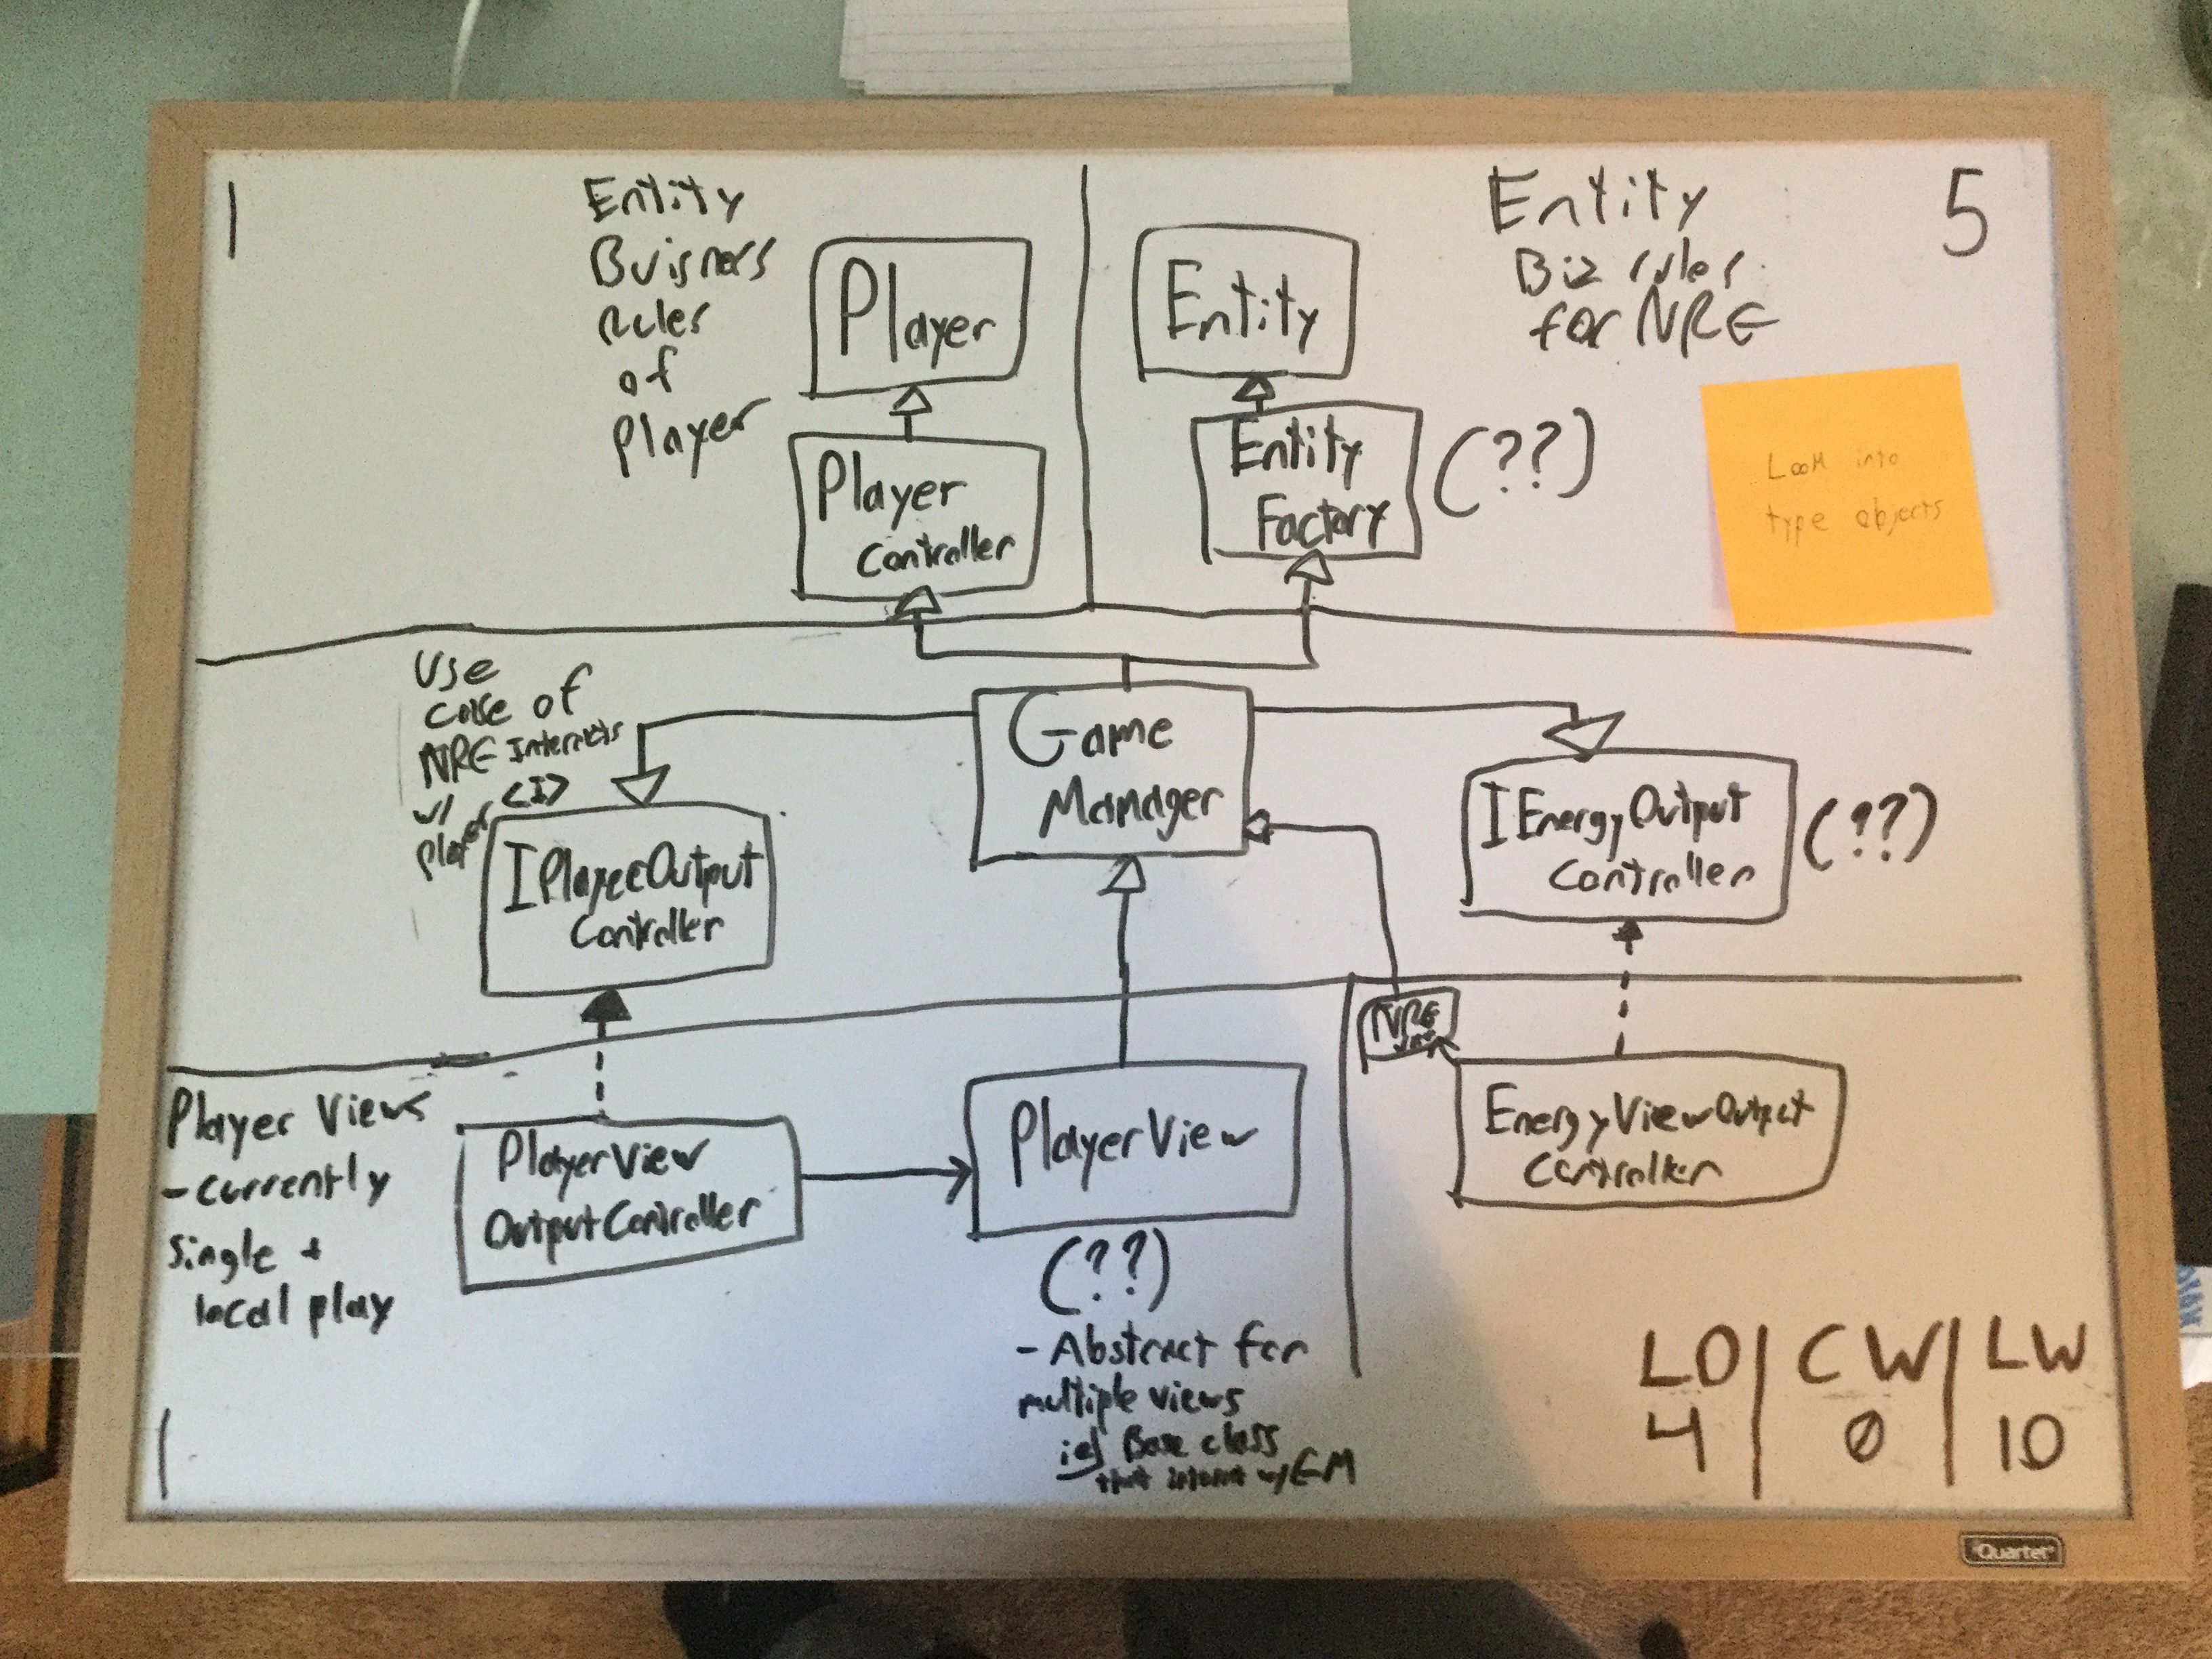 1
Entity
Buisness
Rules
of
Player
Player
Player
Controller
Entity
Entity
Factory
(??)
Entity
Biz rules
for NRE
5
Look into
type objects
Use
case of
NRE Interacts
w/
player
<I>
IPlayerOutput
Controller
Game
Manager
IEnergyOutput
Controller
(??)
Player Views
- currently
single +
local play
PlayerView
OutputController
PlayerView
(??)
- Abstract for
multiple views
ie) Base class
that interact w/
NRE
EnergyViewOutput
Controller
LO | CW | LW
4 | Ø | 10
1
Quartet